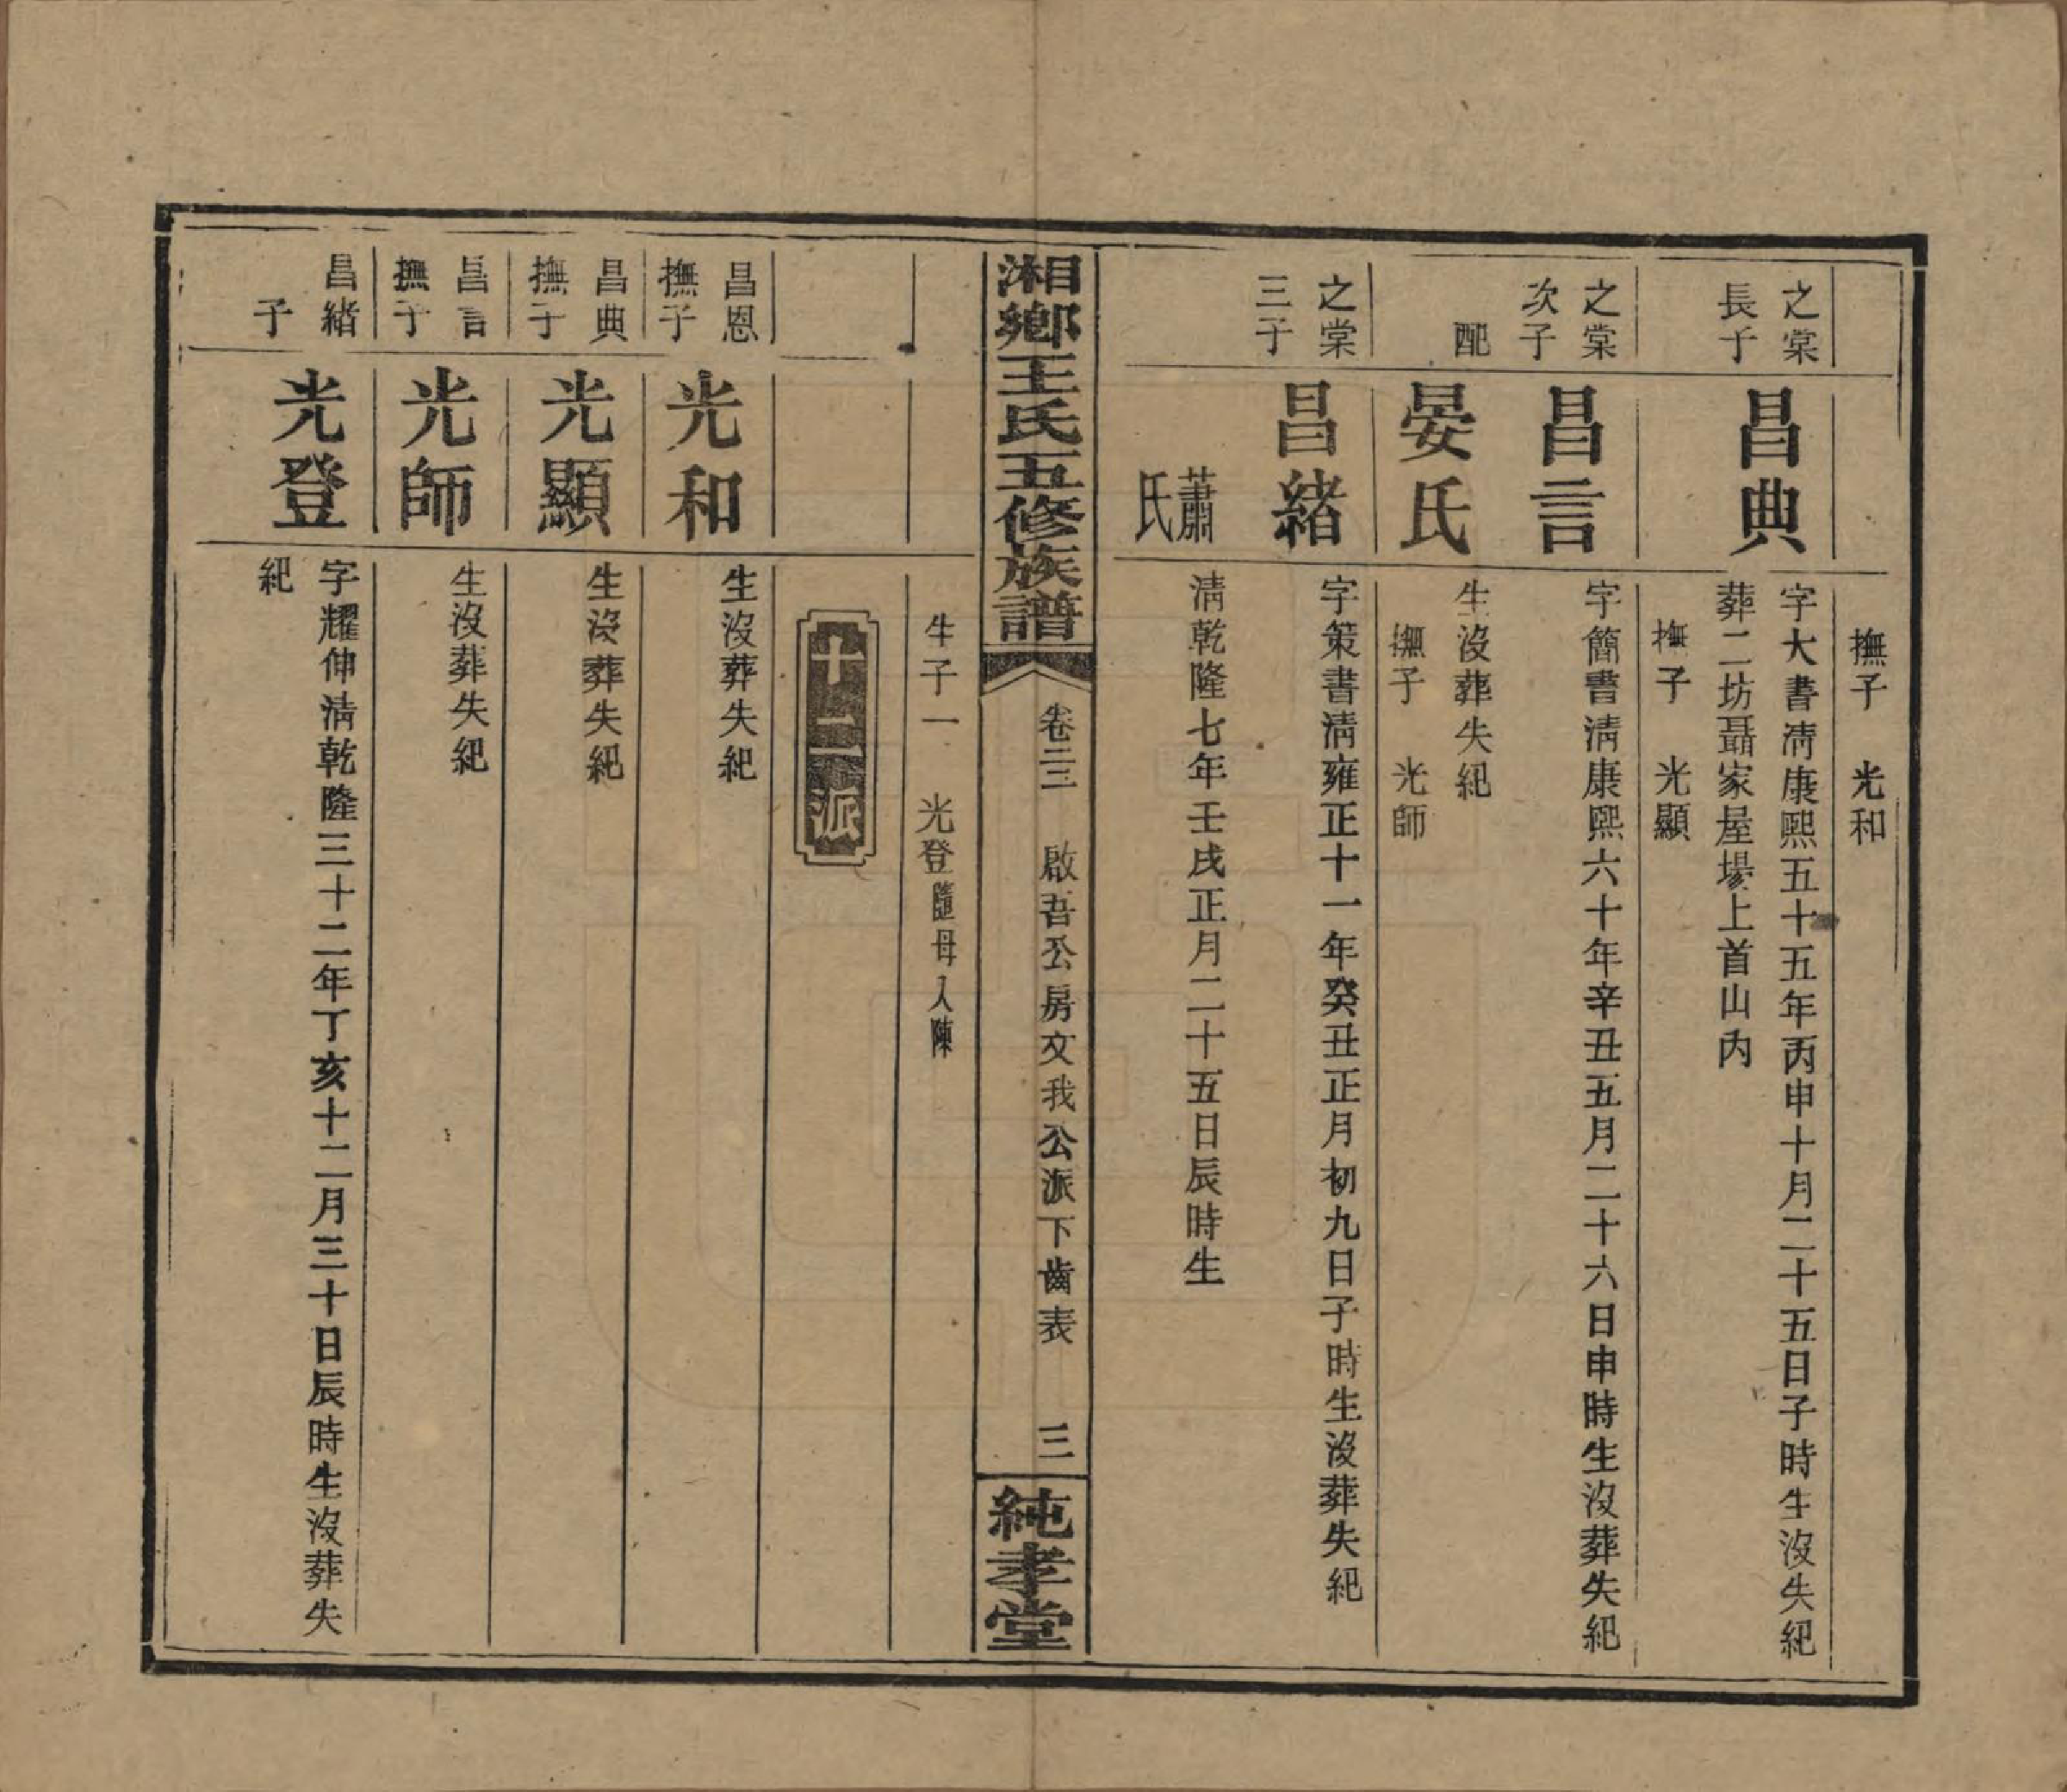 撫子　光和
之棠
長子
昌典
字大書清康熙五十五年丙申十月二十五日子時生沒失紀
葬二坊聶家屋場上首山內
撫子　光顯
之棠
次子
昌言
字簡書清康熙六十年辛丑五月二十六日申時生沒葬失紀
配
晏氏
生沒葬失紀
撫子　光師
之棠
三子
昌緒
字策書清雍正十一年癸丑正月初九日子時生沒葬失紀
蕭氏
清乾隆七年壬戌正月二十五日辰時生
湘鄉王氏五修族譜
卷二三　啟吾公房文我公派下齒表　三
純孝堂
生子一　光登隨母入陳
十二派
昌恩
撫子
光和
生沒葬失紀
昌典
撫子
光顯
生沒葬失紀
昌言
撫子
光師
生沒葬失紀
昌緒
子
光登
字耀伸清乾隆三十二年丁亥十二月三十日辰時生沒葬失
紀